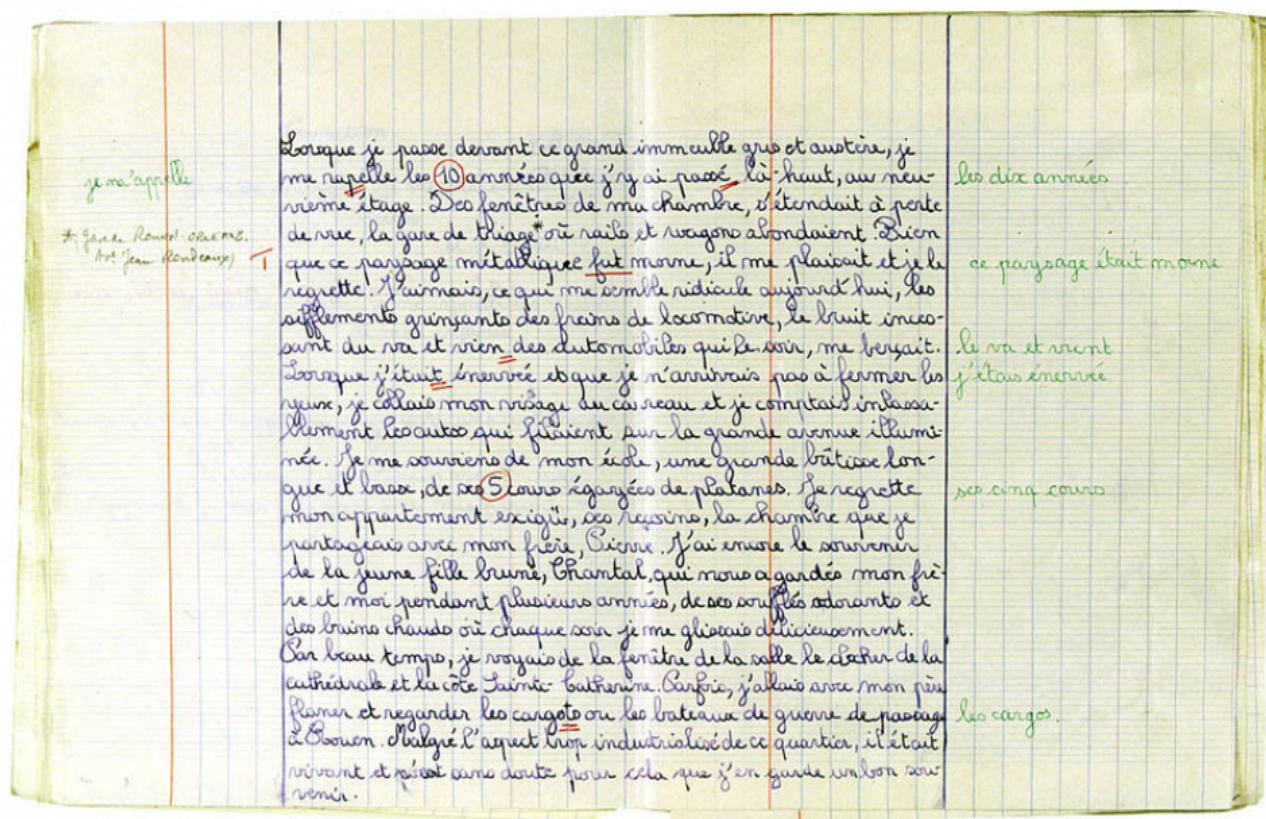 Lorsque je passe devant ce grand immeuble gris et austère, je
me rapelle les 10 années que j'y ai passé, là-haut, au neu-
vième étage. Des fenêtres de ma chambre, s'étendait à perte
de vue, la gare de triage* où rails et wagons abondaient. Bien
que ce paysage métallique fut morne, il me plaisait et je le
regrette. J'aimais, ce qui me semble ridicule aujourd'hui, les
sifflements grinçants des freins de locomotive, le bruit inces-
sant du va et vien des automobiles qui le soir, me berçait.
Lorsque j'était énervée et que je n'arrivais pas à fermer les
yeux, je collais mon visage au carreau et je comptais inlassa-
blement les autos qui filaient sur la grande avenue illumi-
née. Je me souviens de mon école, une grande bâtisse lon-
gue et basse, de ses 5 cours égayées de platanes. Je regrette
mon appartement exigü, ses recoins, la chambre que je
partageais avec mon frère, Pierre. J'ai encore le souvenir
de la jeune fille brune, Chantal, qui nous a gardés mon frè-
re et moi pendant plusieurs années, de ses soufflés odorants et
des bains chauds où chaque soir je me glissais délicieusement.
Par beau temps, je voyais de la fenêtre de la salle le clocher de la
cathédrale et la côte Sainte-Catherine. Parfois, j'allais avec mon père
flaner et regarder les cargots ou les bateaux de guerre de passage
à Rouen. Malgré l'aspect trop industrialisé de ce quartier, il était
vivant et c'est sans doute pour cela que j'en garde un bon sou-
venir.
je me rappelle
* Gare de Rouen-ORLEANS.
Av. Jean Rondeaux)
T
les dix années
ce paysage était morne
le va et vient
j'étais énervée
ses cinq cours
les cargos.